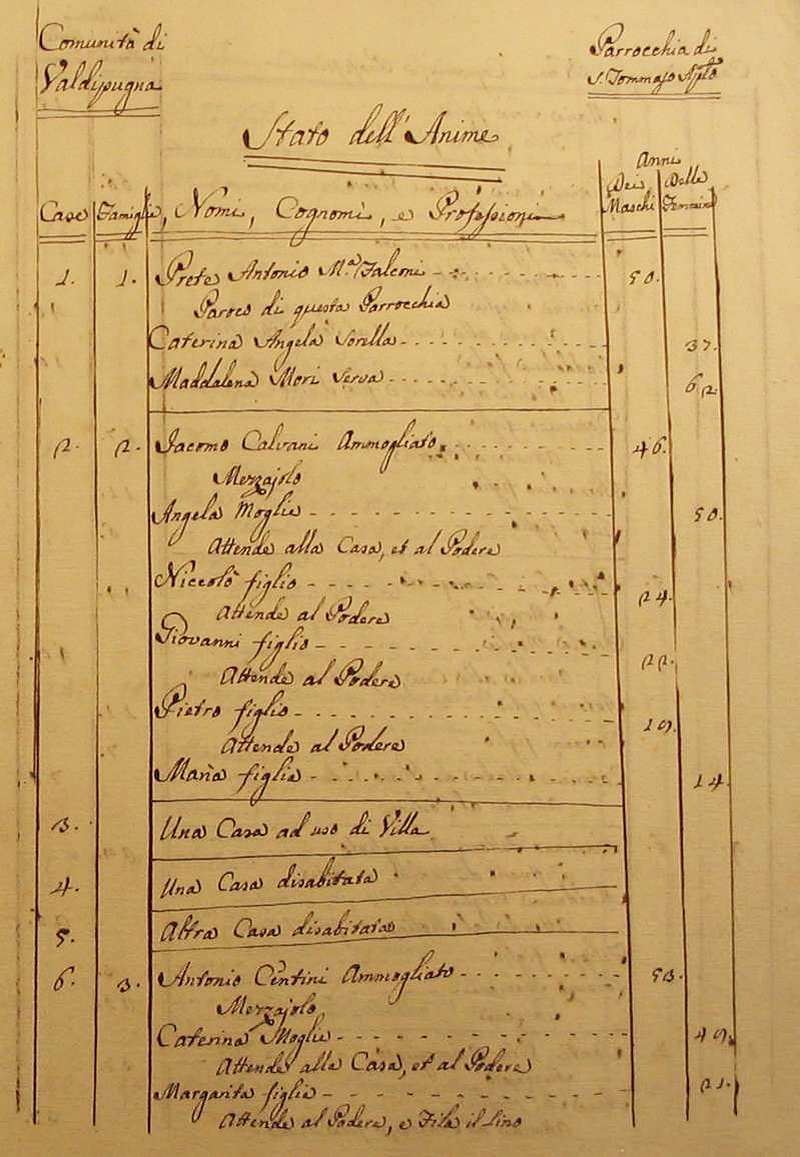 Comunità di
Valdipugna
Parrocchia di
S. Tommaso Aplo
Stato dell'Anime
Anni
Case Famiglie, Nomi, Cognomi, e Professioni Dei Maschi Delle Femmine
1. 1. Prete Antonio M.a Falemi 50.
Parroco di questa Parrocchia
Caterina Angela Sorella 37.
Maddalena Mori Serva 62.
2. 2. Iacomo Calvani Ammogliato 46.
Mezzajolo
Angela Moglie 50.
Attende alla Casa, et al Podere
Niccolò figlio 24.
Attende al Podere
Giovanni figlio 22.
Attende al Podere
Pietro figlio 19.
Attende al Podere
Maria figlia 14.
3. Una Casa ad uso di Villa
4. Una Casa disabitata
5. Altra Casa disabitata
6. 3. Antonio Centini Ammogliato 53.
Mezzajolo
Caterina Moglie 49.
Attende alla Casa, et al Podere
Margarita figlia 21.
Attende al Podere, e Fila il Lino